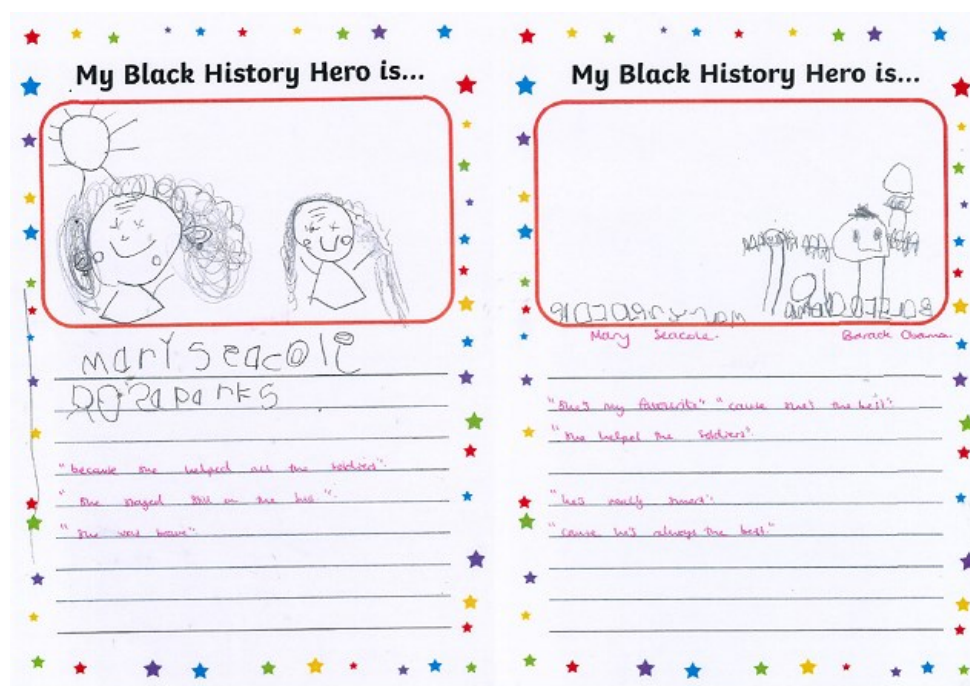 My Black History Hero is...
mary seacole
Rosa parks
"because she helped all the soldiers".
"She stayed still on the bus".
"She was brave".
My Black History Hero is...
Mary Seacole.
Barack Obama.
"She's my favourite" "cause she's the best".
"She helped the soldiers".
"he's really smart".
"cause he's always the best"